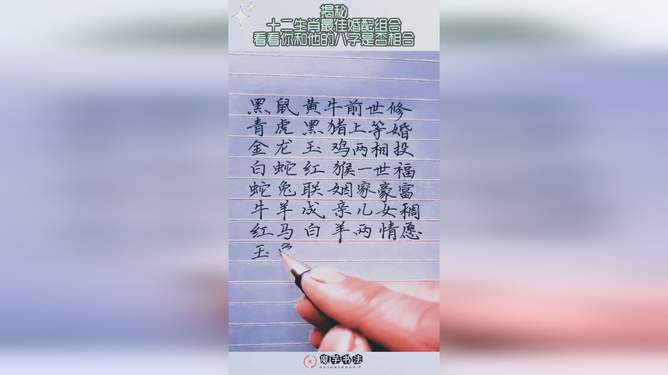 揭秘
十二生肖最佳婚配组合
看看你和他的八字是否相合
黑鼠黄牛前世修
青虎黑猪上等婚
金龙玉鸡两相投
白蛇红猴一世福
蛇兔联姻家豪富
牛羊成亲儿女稠
红马白羊两情愿
玉